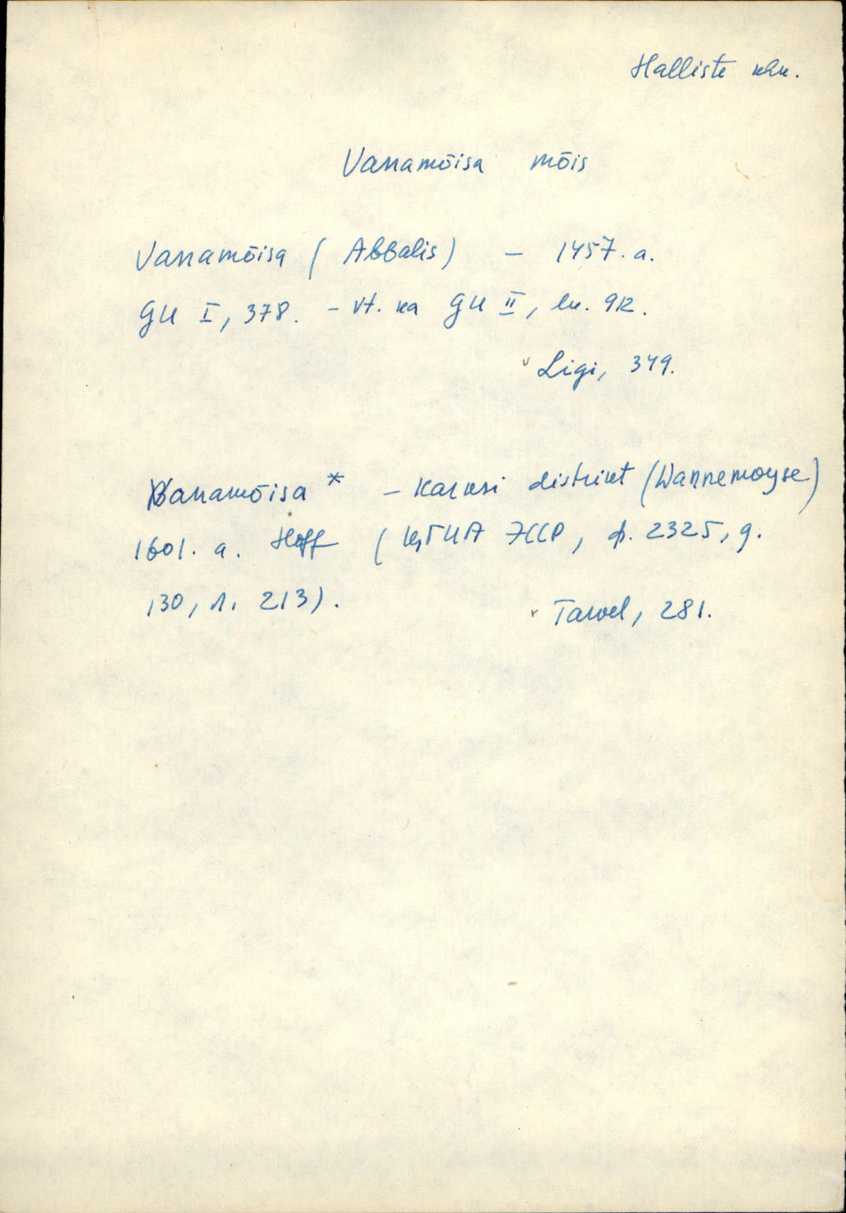 Halliste khk.
Vanamõisa mõis
Vanamõisa (Abbalis) – 1457. a.
GU I, 378. – vt. ka GU II, lk. 912.
v Ligi, 349.
Vanamõisa * – Karksi distrikt (Wannemoyse)
1601. a. Hoff (ЦГИА ЭССР, ф. 2325, д.
130, л. 213).
v Tarvel, 281.